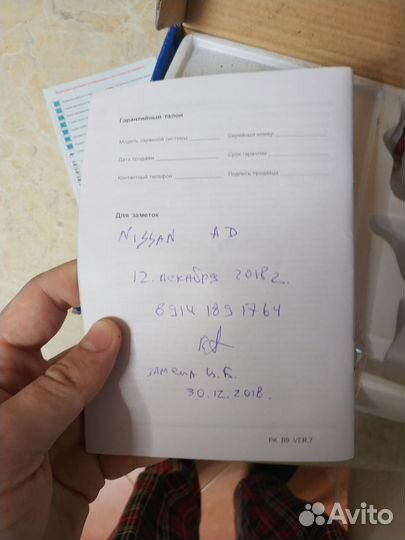 Гарантийный талон
Модель охранной системы Серийный номер
Дата продажи Срок гарантии
Контактный телефон Подпись продавца
Для заметок
NISSAN AD
12. декабря 2018 г.
8914 189 1764
замена ц.б.
30.12.2018.
PK B9 VER.7
Avito